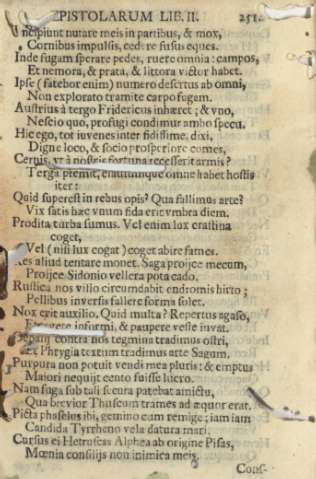 EPISTOLARUM LIB. II. 251.
Incipiunt nutare meis in partibus, & mox,
Cornibus impulsis, cedere fusus eques.
Inde fugam sperare pedes, ruere omnia: campos,
Et nemora, & prata, & littora victor habet.
Ipse (fatebor enim) numero desertus ab omni,
Non explorato tramite carpo fugam.
Austrius à tergo Fridericus inhæret; & vno,
Nescio quo, profugi condimur ambo specu.
Hic ego, tot iuvenes inter fidissime, dixi,
Digne loco, & socio prosperiore comes,
Cernis, vt à nostris fortuna recesserit armis?
Terga premit, omne habet hostis
iter:
Quid superest in rebus opis? Qua fallimus arte?
Vix satis hæc vnum fida erit vmbra diem.
Prodita turba sumus. Vel enim lux crastina
coget,
Vel (nisi lux cogat) coget abire fames.
Res aliud tentare monet. Saga projice mecum,
Projice Sidonio vellera pota cado.
Rustica nos vilio circumdabit endromis hirto;
Pellibus inversis fallere forma solet.
Nox erit auxilio. Quid multa? Repertus agaso,
informi, & paupere veste iuvat.
contra nos tegmina tradimus ostri,
Et Phrygia textum tradimus arte Sagum.
Purpura non potuit vendi mea pluris: & emptus
Maiori nequijt cento fuisse lucro.
Nam fuga sub tali secura patebat amictu,
Qua brevior Thuscum trames ad æquor erat.
Picta phaselus ibi, gemino cum remige; iam iam
Candida Tyrrheno vela datura mari.
Cursus ei Hetruscas Alphea ab origine Pisas,
Mœnia consilijs non inimica meis.
Cons-